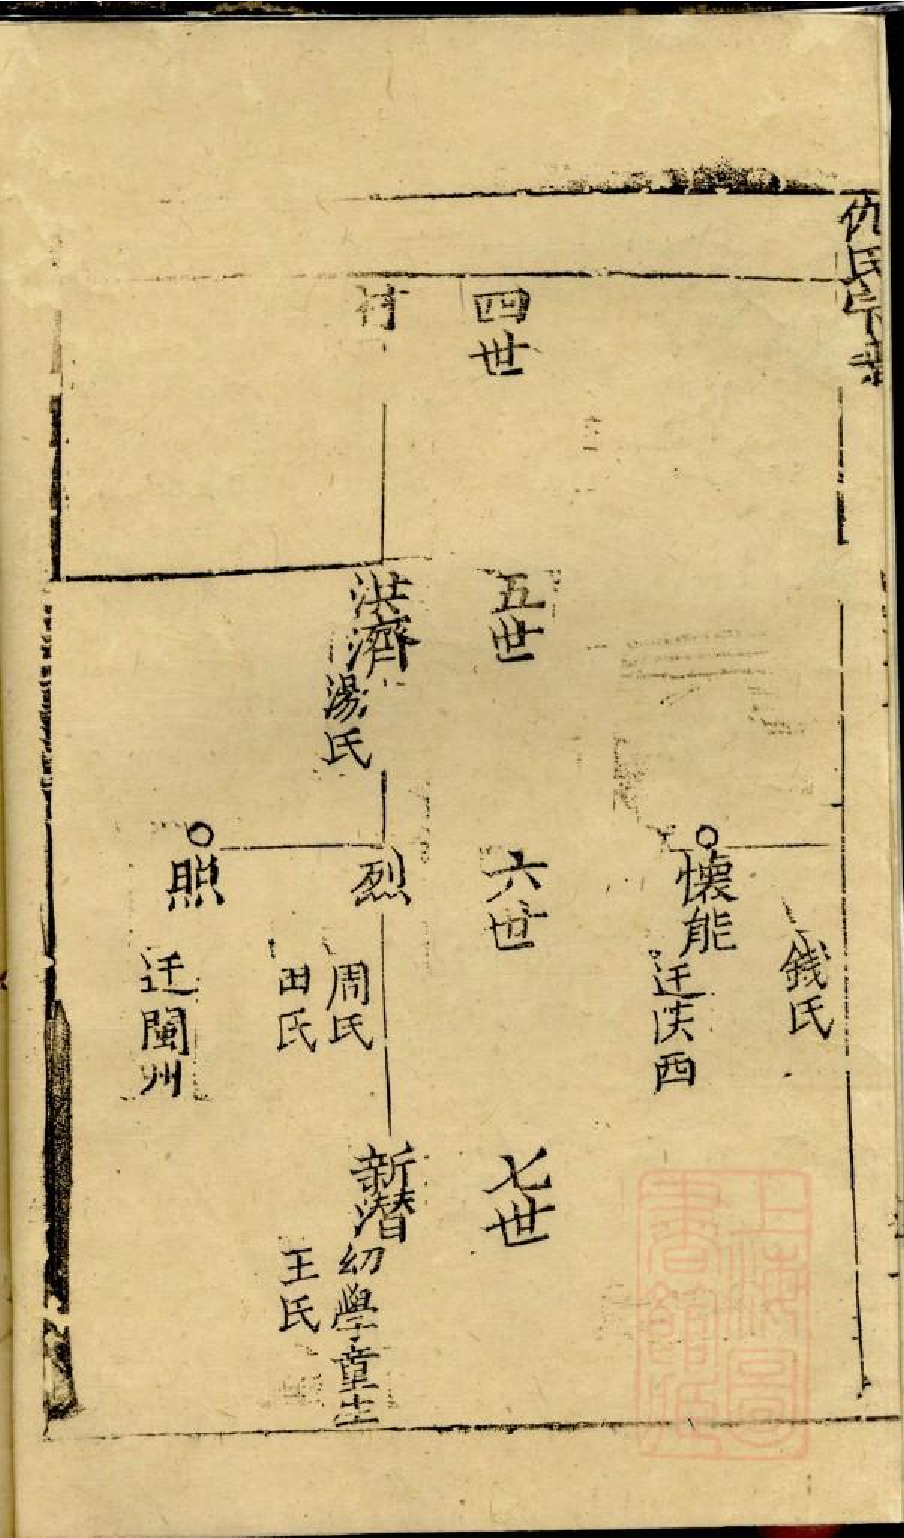 仇氏宗譜
錢氏
懷能
迁陕西
四世
五世
六世
七世
村
洪濟
湯氏
烈
周氏
田氏
新潜
幼學童生
王氏
照
迁閩州
上海圖書館藏